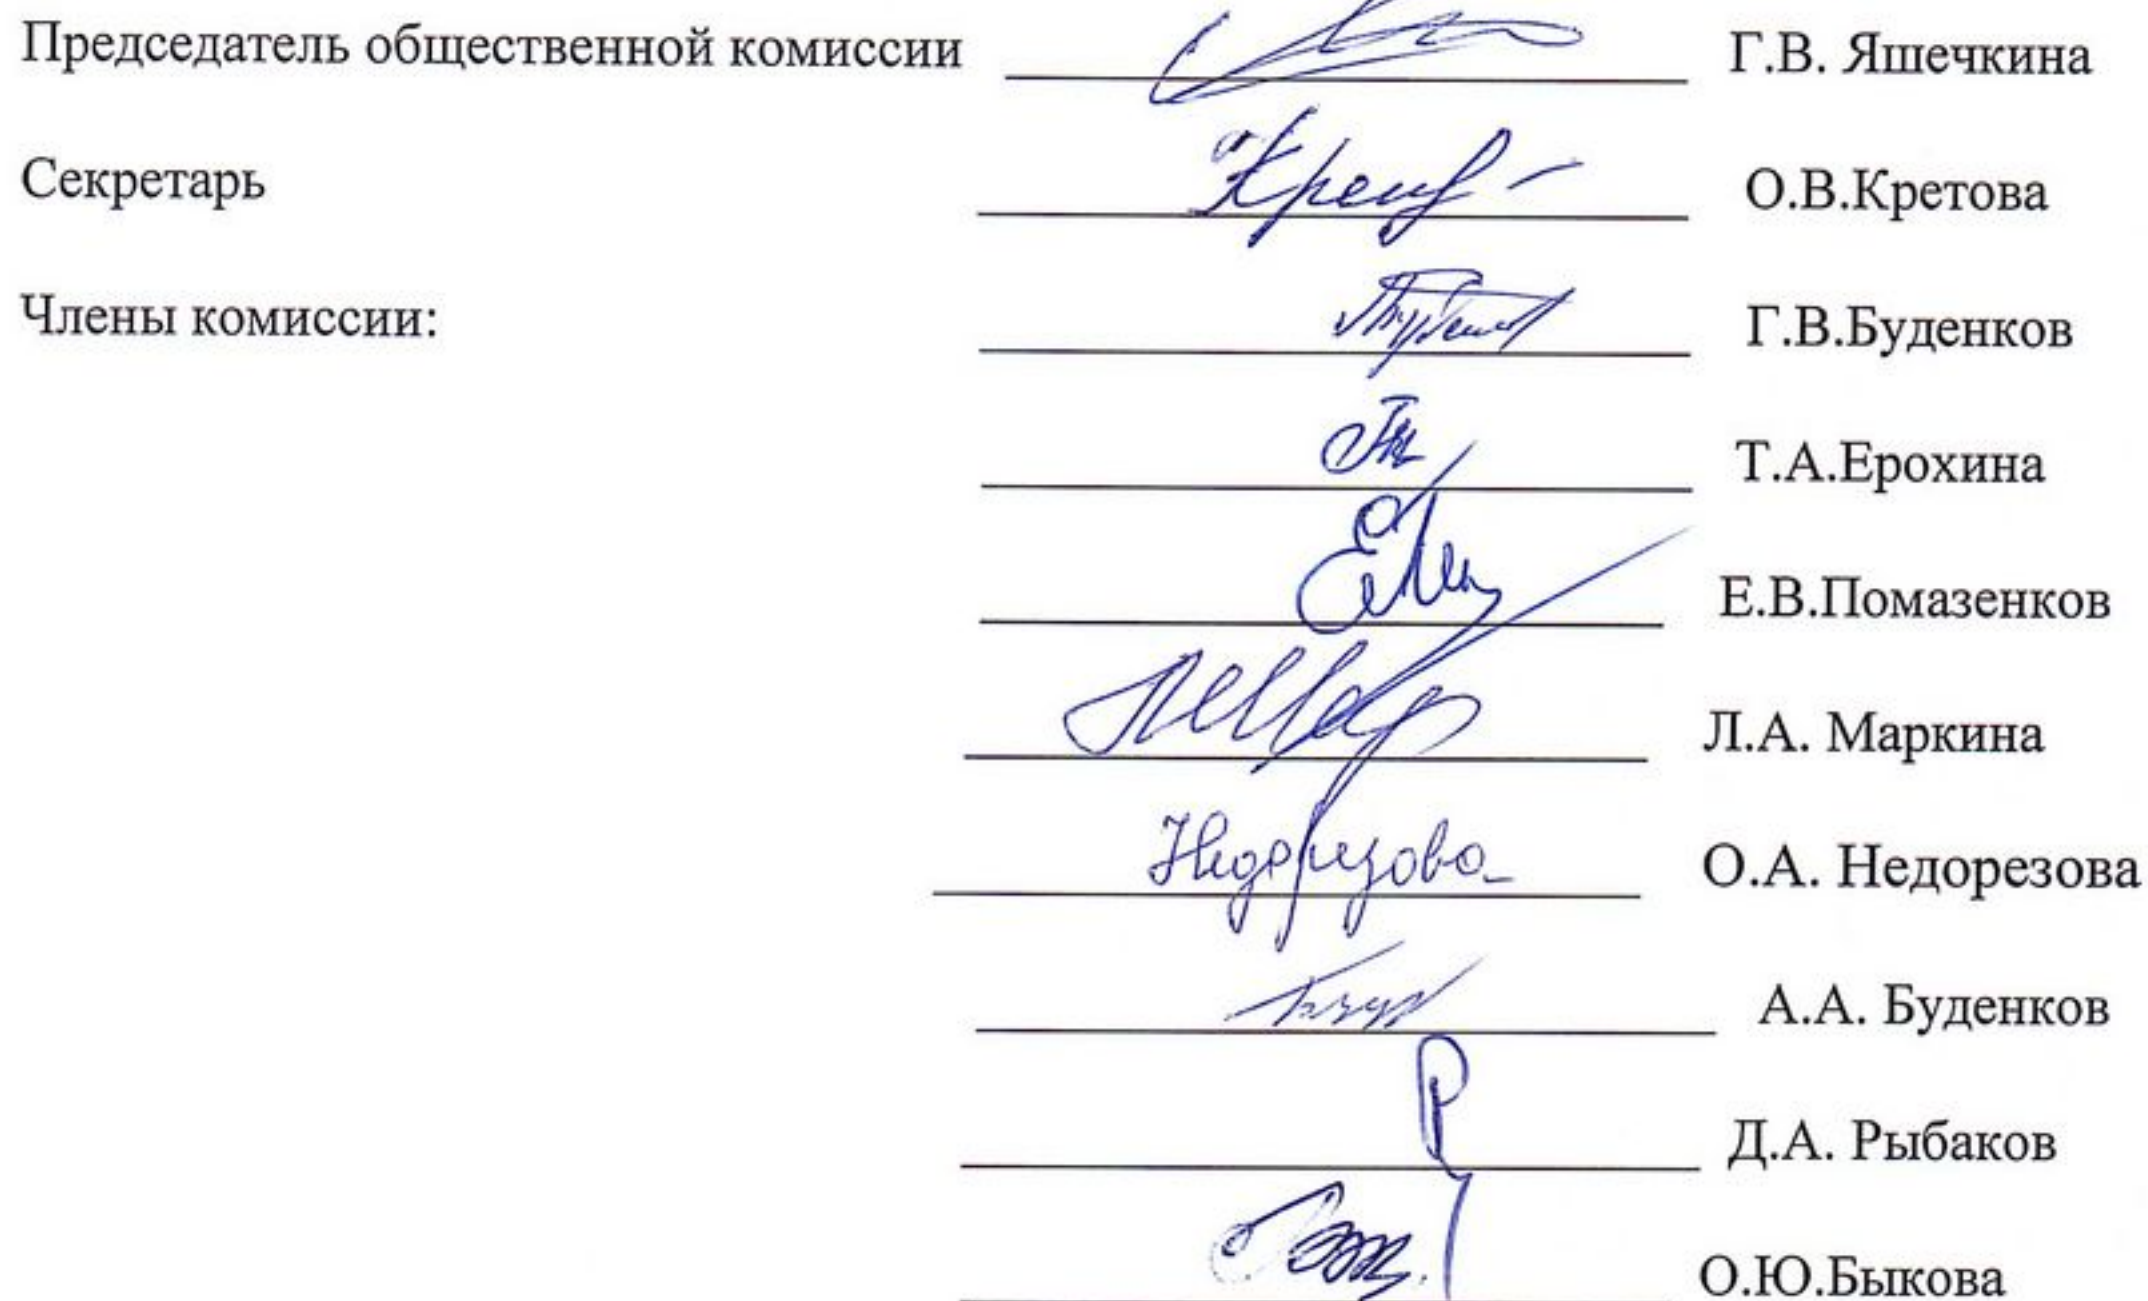 Председатель общественной комиссии Г.В. Яшечкина
Секретарь О.В.Кретова
Члены комиссии: Г.В.Буденков
Т.А.Ерохина
Е.В.Помазенков
Л.А. Маркина
Недорезова О.А. Недорезова
А.А. Буденков
Д.А. Рыбаков
О.Ю.Быкова